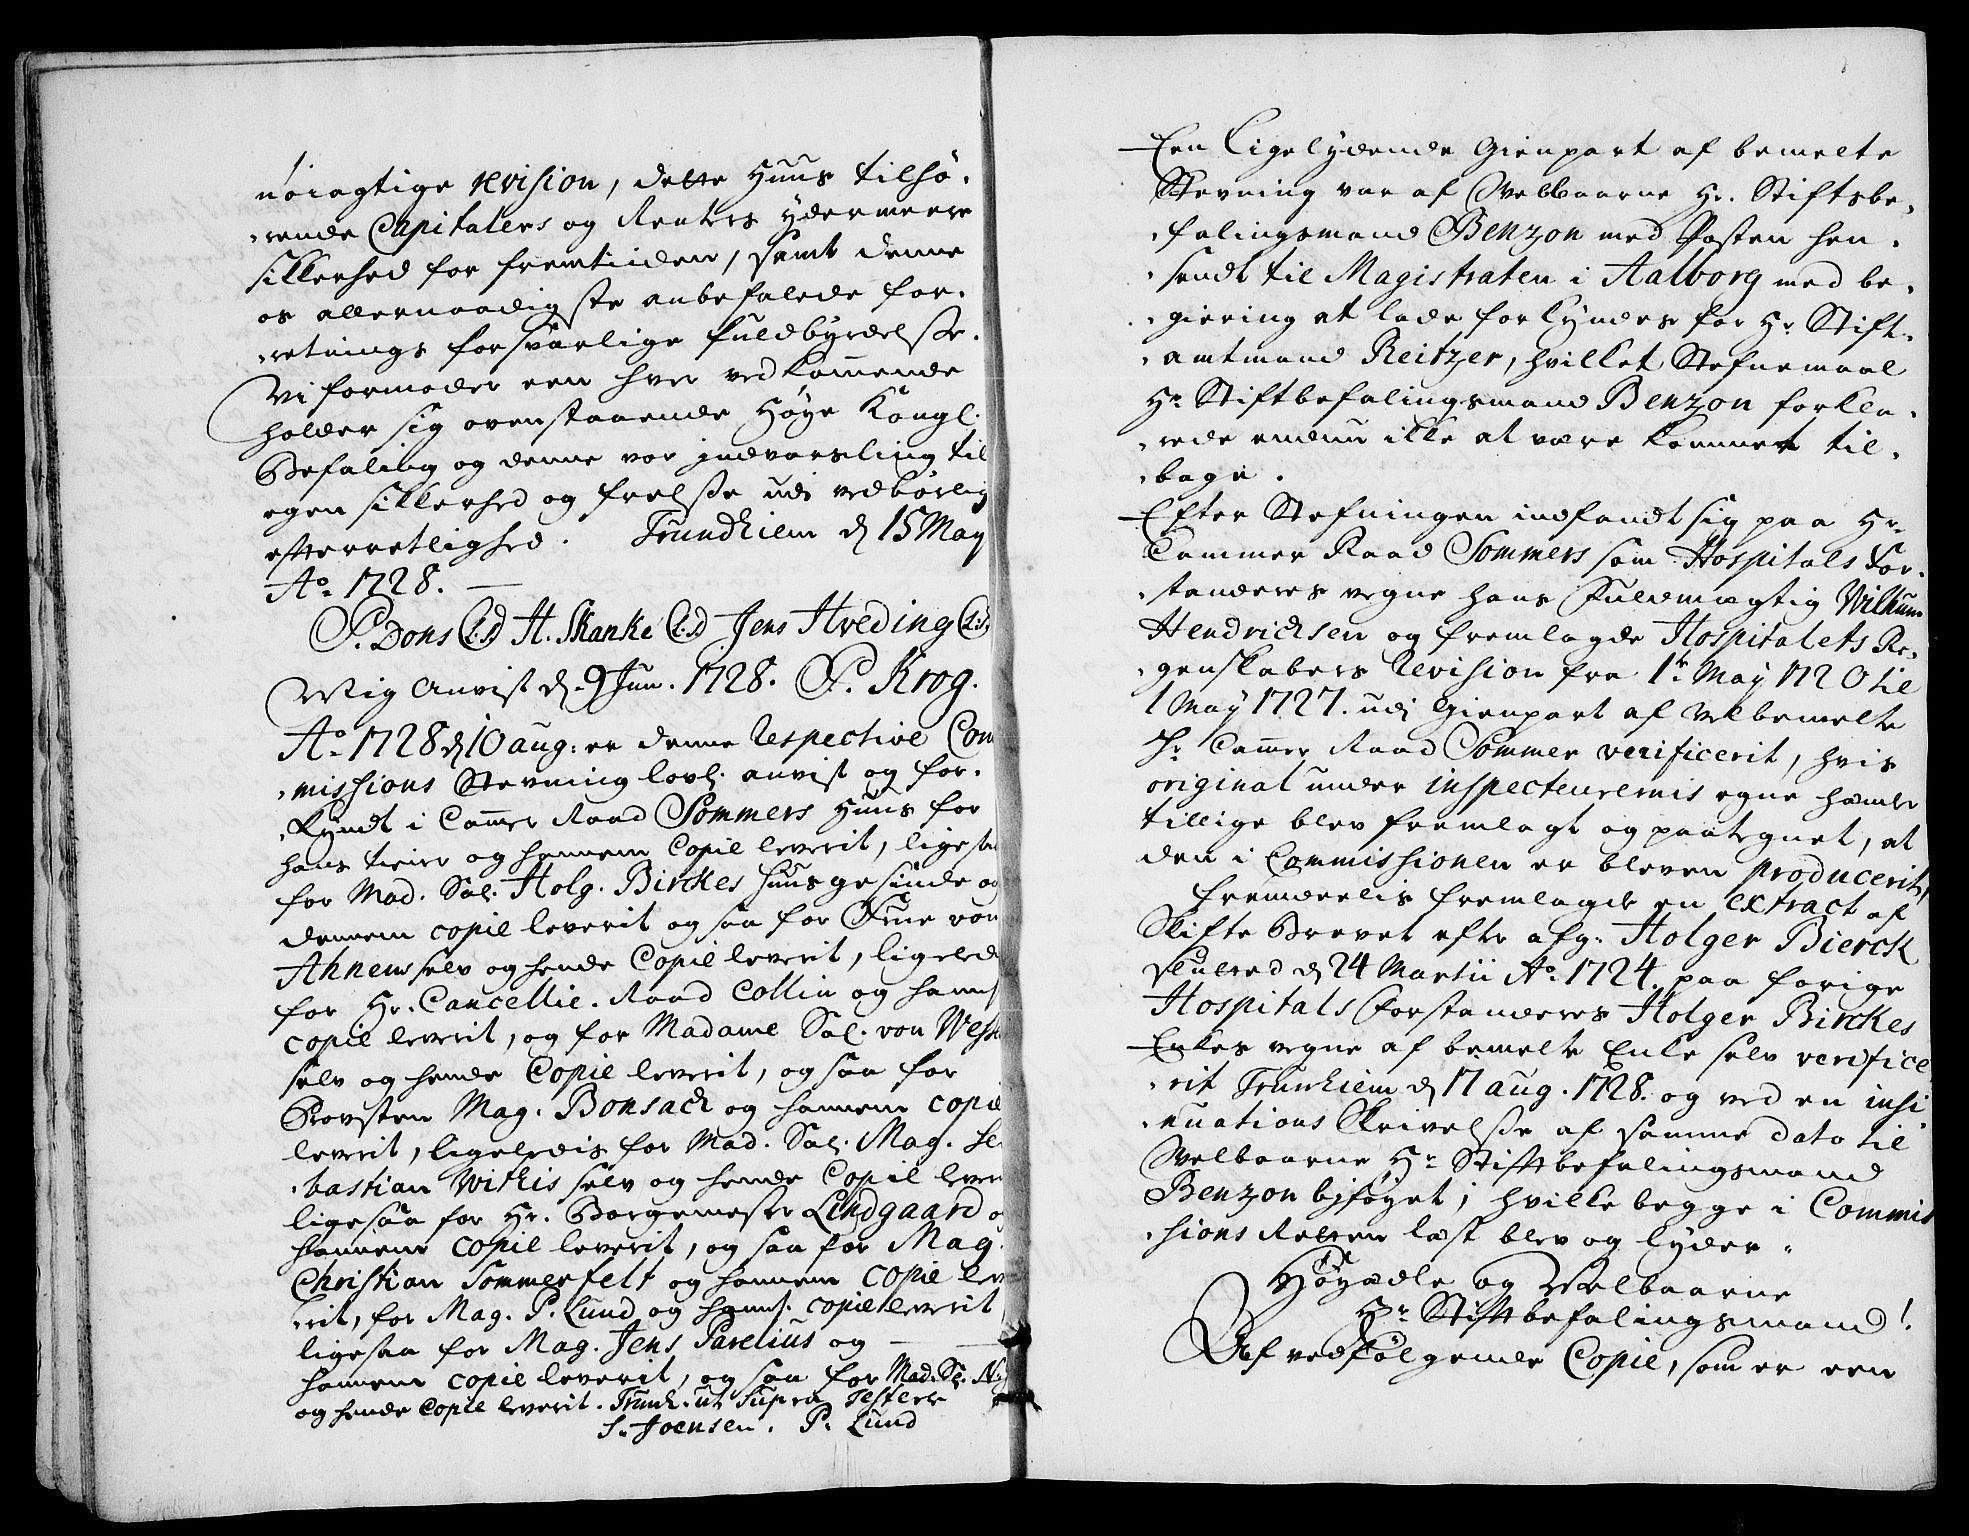 nöiagtige revision, dette Huus tilhö-
-rende Capitalers og Renters ydermeere
sikkerhed for fremtiiden, samt denne
os allernaadigste anbefalede for-
-retnings forsvarlige fuldbyrdelsse.
Vi formoder een hver vedkommende
holder sig ovenstaaende Høye Kongl.
Befaling og denne vor indvarsling til
egen sikkerhed og frelsse udi vedbörlig
efterretlighed. Trundhiem d 15 May
Ao. 1728. —
P. Dons (L:S) H. Skanke (L:S) Jens Hveding (L:S)
Mig Anvist d. 9 Jun. 1728. P. Krog.
Ao. 1728 d 10 aug: er denne Respective Com
-missions Stevning lovl. anvist og for-
-kyndt i Cammer Raad Sommers Huus for
hans tiener og hannem Copie leverit, ligesaa
for Mad. Sal. Holg. Birckes Huusgesinde og
dennem copie leverit og saa for Frue von
Ahnen selv og hende Copie leverit, ligeledes
for Hr. Cancellie-Raad Collin og hannem
copie leverit, og for Madame Sal. von Wess
selv og hende Copie leverit, og saa for
Provsten Mag. Bonsach og hannem copie
leverit, ligeledis for Mad. Sal. Mag. Se
-bastian Withis selv og hende Copie lever
ligesaa for Hr. Borgemester Lindgaard o
hannem copie leverit, og saa for Mag.
Christian Sommerfelt og hannem copie lev
-erit, for Mag. P. Lund og hannem copie leverit
ligesaa for Mag. Jens Parelius og —
hannem copie leverit, og saa for Mad. Sl. N.
og hende Copie leverit. Trundh. ut Supra Testerer
S. Joensen. P. Lund
Een Ligelydende Gienpart af bemelte
Stevning var af Welbaarne Hr. Stiftsbe-
-falingsmand Benzon med Posten hen-
-sendt til Magistraten i Aalborg med be-
-giering at lade forkyndes for Hr. Stift-
-amtmand Reitzer, hvilket Stefnemaal
Hr. Stiftbefalingsmand Benzon forkla-
-rede endnu ikke at være kommet til-
-bage.
Efter Stefningen indfandt sig paa Hr.
Cammer Raad Sommers som Hospitals For-
-standeres vegne hans Fuldmægtig Wilhum
Hendrichsen og fremlagde Hospitalets Re-
-genskabers Revision fra 1te May 1720 til
1 May 1727. udi Gienpart af velbemelte
Hr. Cammer Raad Sommer verificerit, hvis
original under inspecteurernis egne hænder
tillige blev fremlagt og paategnet, at
den i Commissionen er bleven producerit,
fremdeelis fremlagde en extract af
Skifte Brevet efter afg. Holger Bierck
slutted d 24 Martii Ao. 1724. paa forige
Hospitals Forstanderes Holger Birckes
Enkes vegne af bemelte Enke selv verifice
-rit Trunhiem d 17 aug. 1728. og ved en insi
-nuations Skrivelsse af samme dato til
Welbaarne Hr. Stiftbefalingsmand
Benzon byføyet, hvilke begge i Commis
-sions Retten læst blev og lyder.
Høyædle og Velbaarne
Hr. Stiftbefalingsmand!
Af vedfölgende Copie, som er een